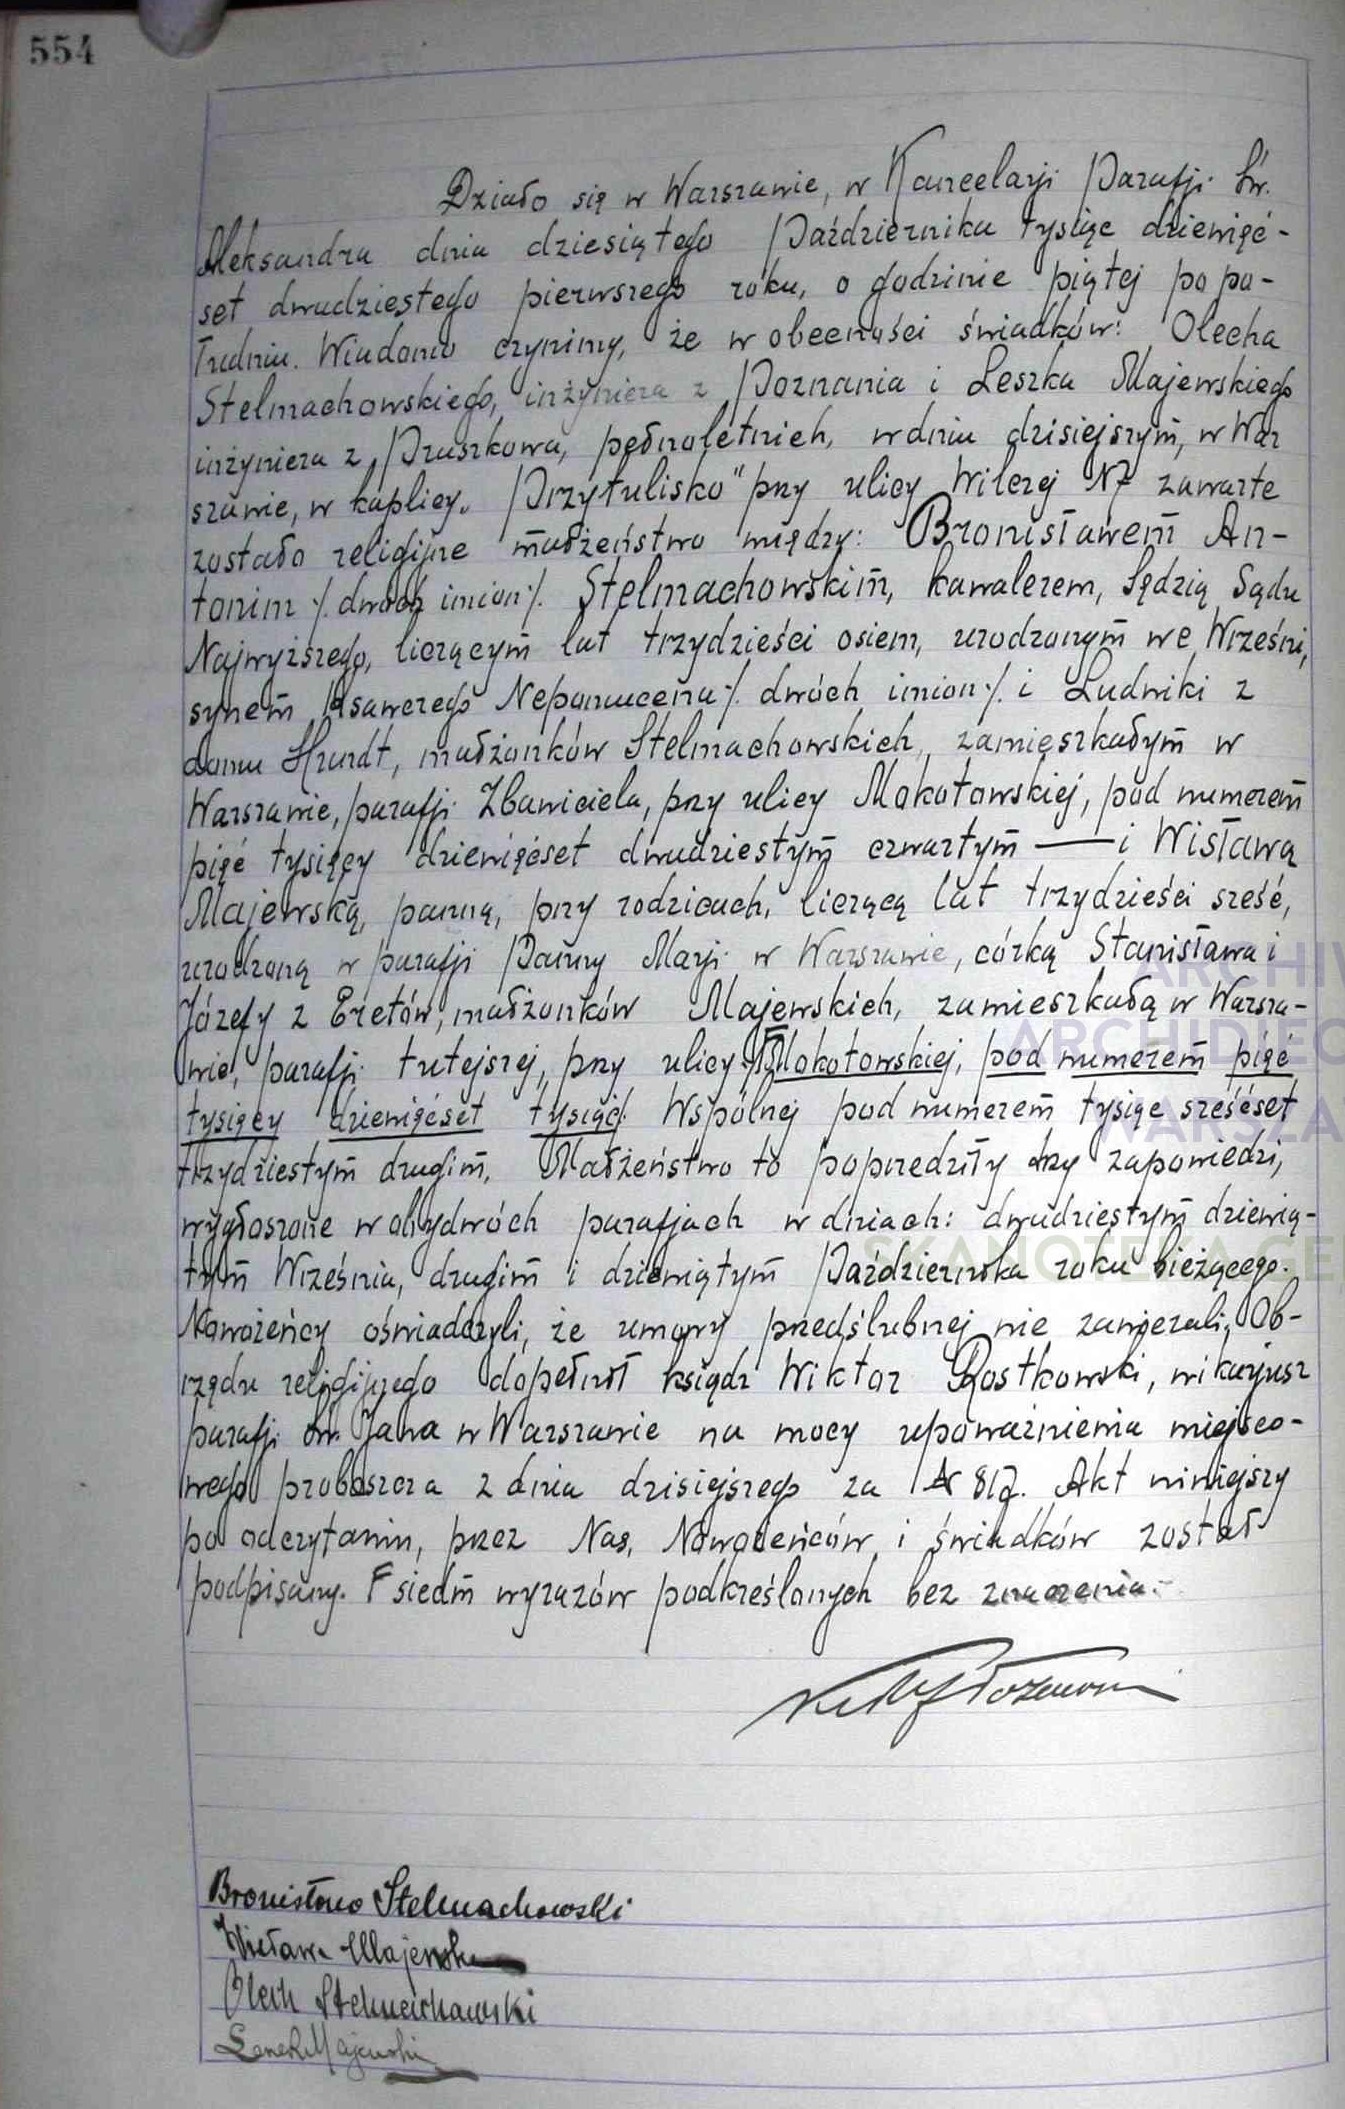 554
Działo się w Warszawie, w Kancelarji Parafji Św.
Aleksandra dnia dziesiątego Października tysiąc dziewięć-
set dwudziestego pierwszego roku, o godzinie piątej po po-
łudniu. Wiadomo czynimy, że w obecności świadków: Olecha
Stelmachowskiego, inżyniera z Poznania i Leszka Majewskiego
inżyniera z Pruszkowa, pełnoletnich, w dniu dzisiejszym, w War
szawie, w kaplicy „Przytulisko" przy ulicy Wilczej N7 zawarte
zostało religijne małżeństwo między: Bronisławem An-
tonim /. dwóch imion /. Stelmachowskim, kawalerem, Sędzią Sądu
Najwyższego, liczącym lat trzydzieści osiem, urodzonym we Wrześni,
synem Ksawerego Nepomucena /. dwóch imion /. i Ludwiki z
domu małżonków Stelmachowskich, zamieszkałym w
Warszawie, parafji Zbawiciela, przy ulicy Mokotowskiej, pod numerem
pięć tysięcy dziewięćset dwudziestym czwartym — i Wisławą
Majewską, panną, przy rodzicach, liczącą lat trzydzieści sześć,
urodzoną w parafji Panny Marji w Warszawie, córką Stanisława i
Józefy z Eretów, małżonków Majewskich, zamieszkałą w Warsza-
wie, parafji tutejszej, przy ulicy /. Mokotowskiej, pod numerem pięć
tysięcy dziewięćset tysiąc /. Wspólnej pod numerem tysiąc sześćset
trzydziestym drugim. Małżeństwo to poprzedziły trzy zapowiedzi,
wygłoszone w obydwóch parafjach w dniach: dwudziestym dziewią-
tym Września, drugim i dziewiątym Października roku bieżącego.
Nowożeńcy oświadczyli, że umowy przedślubnej nie zawierali. Ob-
rzędu religijnego dopełnił ksiądz Wiktor Rostkowski, wikarjusz
parafji św. Jana w Warszawie na mocy upoważnienia miejsco-
wego proboszcza z dnia dzisiejszego za N 817. Akt niniejszy
po odczytaniu, przez Nas, Nowożeńców i świadków został
podpisany. siedm wyrazów podkreślonych bez znaczenia.
Bronisław Stelmachowski
Wisława Majewska
Olech Stelmachowski
Leszek Majewski
ARCHIW
ARCHIDIEC
WARSZA
SKANOTEKA GE